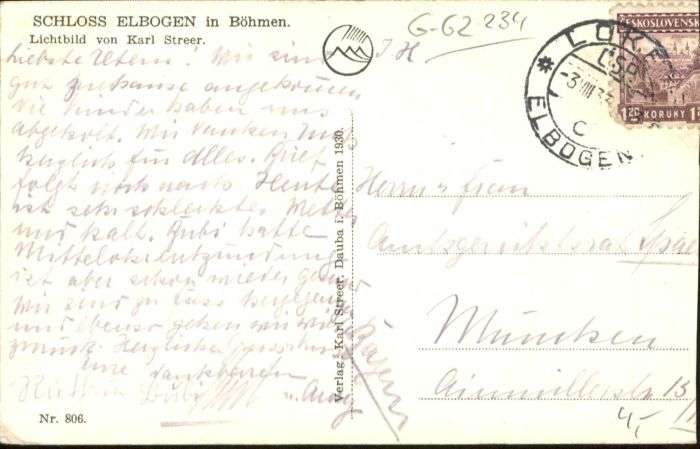 SCHLOSS ELBOGEN in Böhmen.
Lichtbild von Karl Streer.
G-62 234
Liebste Eltern! Wir sind
gut zuhause angekommen
die Kinder haben uns
abgeholt. Wir danken
für alles. Brief
folgt noch nach. Heute
ist sehr schlechtes Wetter
und kalt. Bubi hatte
Mittelohrentzündung
ist aber schon wieder gesund
Wir sind zu
und ebenso gehen wir
zurück. Herzlichst
Eure dankbaren
Nr. 806.
Verlag: Karl Streer, Dauba i. Böhmen 1930.
ČESKOSLOVENSK
1·20 KORUKY 1·
LOKE
ČSR
-3.VIII.33
C
* ELBOGEN
Herrn u Frau
Amtsgerichtsrat
München
Ainmillerstr 13
Bayern
4,-